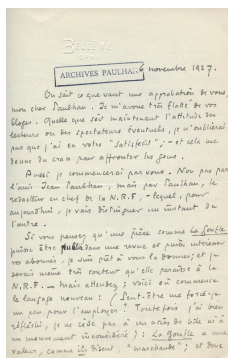 BELLÈVE
ARCHIVES PAULHAN
6 novembre 1927.
On sait ce que vaut une approbation de vous,
mon cher Paulhan. Je m'avoue très flatté de vos
éloges. Quelle que soit maintenant l'attitude des
lecteurs ou des spectateurs éventuels, je n'oublierai
pas que j'ai eu votre "satisfecit"; – et cela me
donne du cran pour affronter les gens.
Aussi je commencerai par vous. Non pas par
l'ami Jean Paulhan, mais par Paulhan, le
rédacteur en chef de la N.R.F, – lequel, pour
aujourd'hui, je vais distinguer un instant de
l'autre.
Si vous pensez qu'une pièce comme La Gonfle
puisse être publiée dans une revue et puisse intéresser
vos abonnés, je suis prêt à vous la donner; et je
serais même très content qu'elle paraisse à la
N.R.F. – mais attendez; voici où commence
le langage nouveau: (Peut-être me forcé-je
un peu pour l'employer? Toutefois j'ai bien
réfléchi, je ne cède pas à un accès de bile ni à
un mouvement inconsidéré): La Gonfle a une
valeur, comme ils disent, "marchande"; et donc